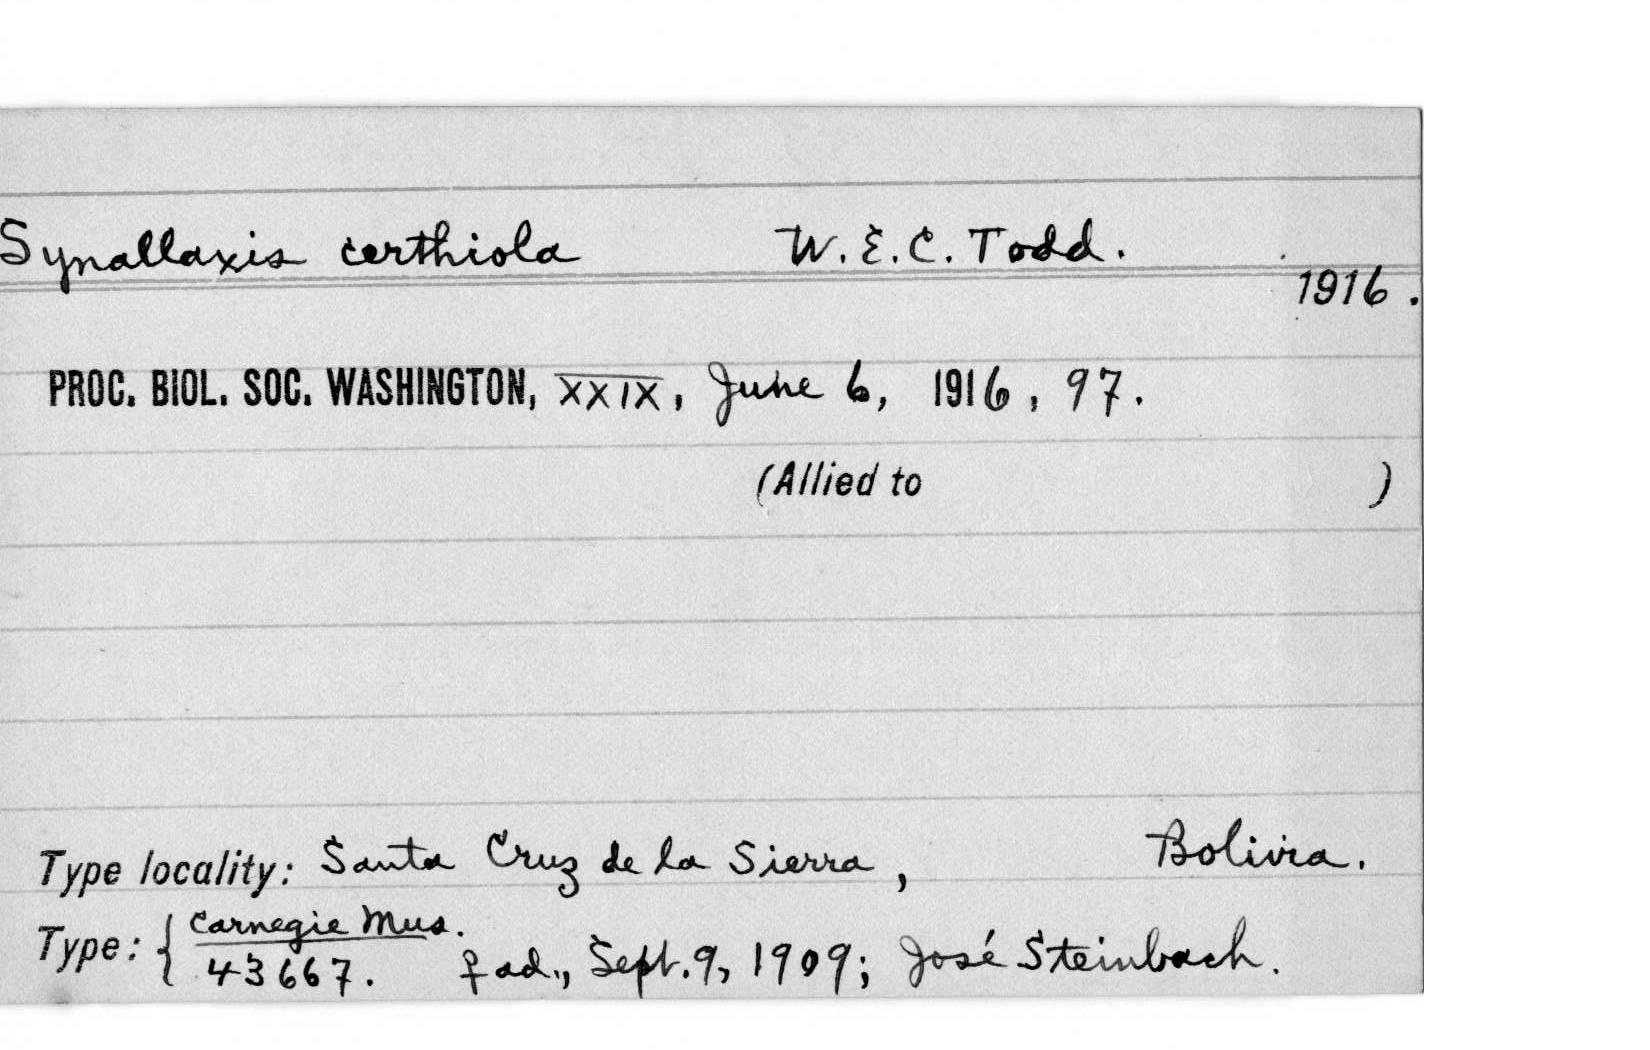 Synallaxis certhiola W. E. C. Todd.
1916.
PROC. BIOL. SOC. WASHINGTON, XXIX, June 6, 1916, 97.
(Allied to )
Type locality: Santa Cruz de la Sierra, Bolivia.
Type: { Carnegie Mus.
43667. ♀ ad., Sept. 9, 1909; José Steinbach.